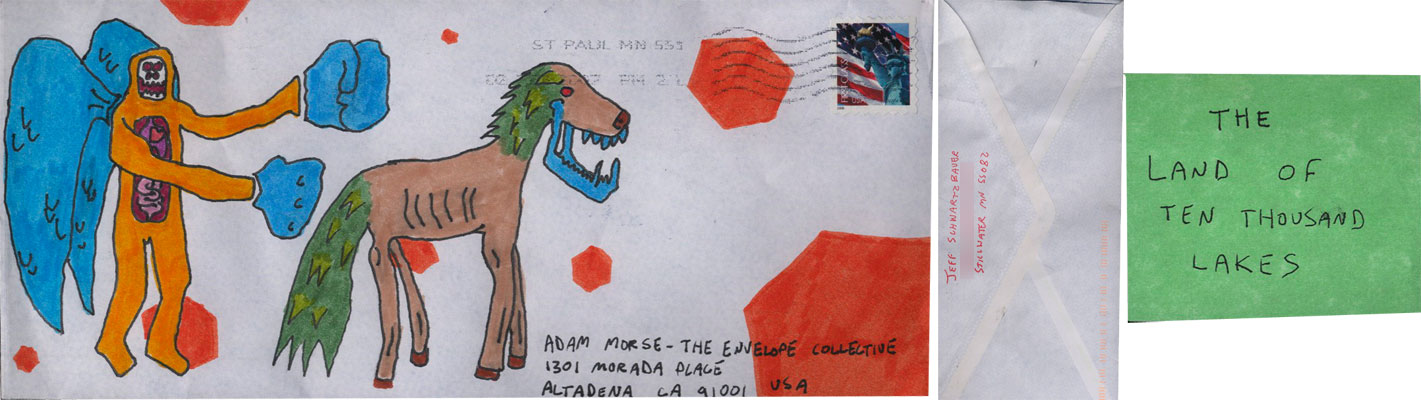 ST PAUL MN 551
PM 2 L
USA
ADAM MORSE - THE ENVELOPE COLLECTIVE
1301 MORADA PLACE
ALTADENA CA 91001 USA
JEFF SCHWARTZBAUER
STILLWATER MN 55082
THE
LAND OF
TEN THOUSAND
LAKES